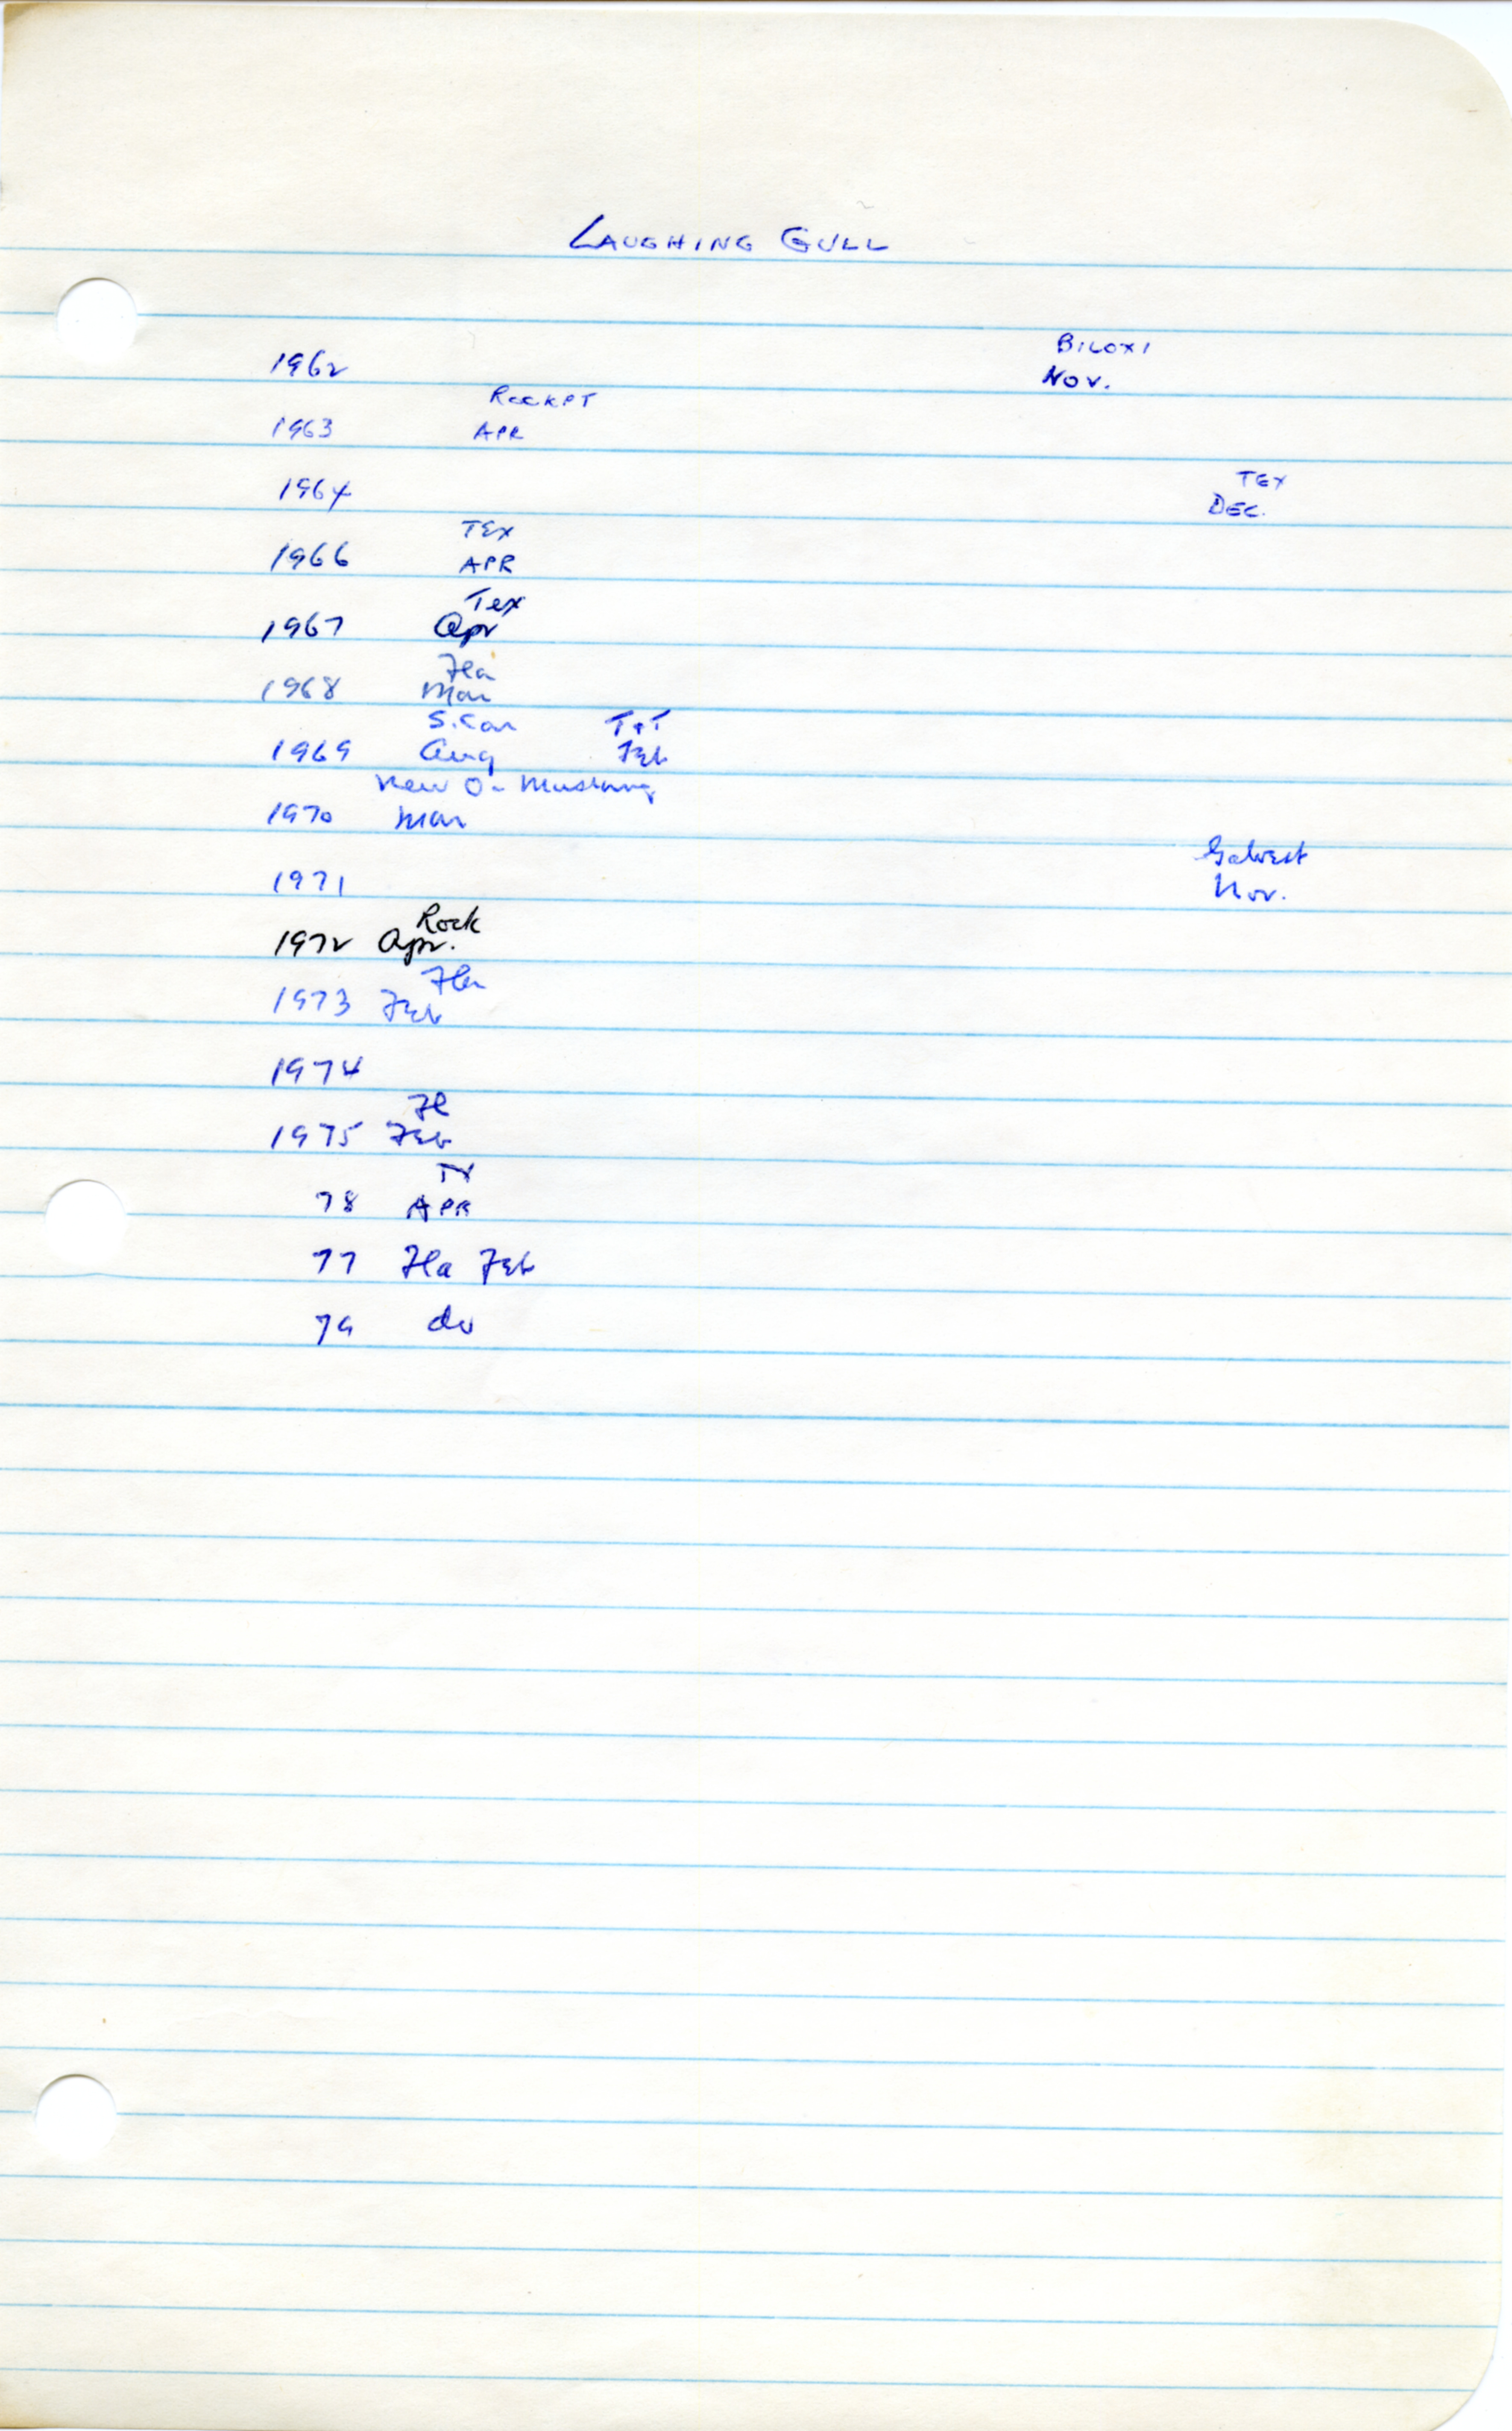 LAUGHING GULL
BILOXI
1962 Nov.
ROCKPT
1963 APR
TEX
1964 DEC.
TEX
1966 APR
Tex
1967 Apr
Fla
1968 Mar
S. Car T+T
1969 Aug Feb
New O- Mustang
1970 Mar
Galvest
1971 Nov.
Rock
1972 Apr.
Fla
1973 Feb
1974
Fl
1975 Feb
TX
78 APR
77 Fla Feb
79 do